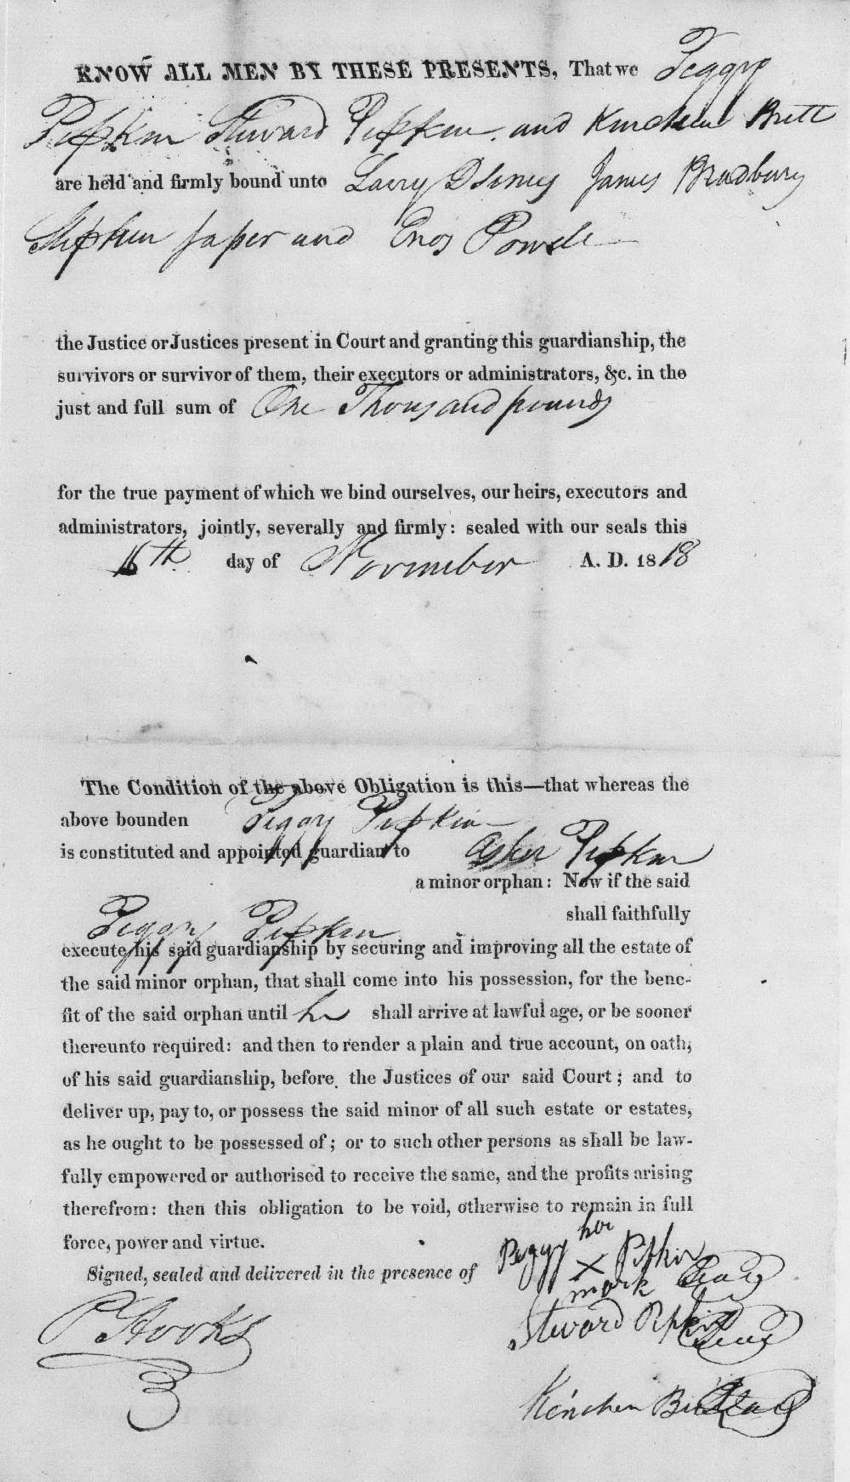 KNOW ALL MEN BY THESE PRESENTS, That we Peggy
Pipkin Steward Pipkin and Kinchen Britt
are held and firmly bound unto Larry James Bradbury
Stephen Jasper and Enos Powell
the Justice or Justices present in Court and granting this guardianship, the
survivors or survivor of them, their executors or administrators, &c. in the
just and full sum of One Thousand pounds
for the true payment of which we bind ourselves, our heirs, executors and
administrators, jointly, severally and firmly: sealed with our seals this
16th day of November A. D. 1818
The Condition of the above Obligation is this—that whereas the
above bounden Peggy Pipkin
is constituted and appointed guardian to Asher Pipkin
a minor orphan: Now if the said
Peggy Pipkin shall faithfully
execute his said guardianship by securing and improving all the estate of
the said minor orphan, that shall come into his possession, for the bene-
fit of the said orphan until he shall arrive at lawful age, or be sooner
thereunto required: and then to render a plain and true account, on oath,
of his said guardianship, before the Justices of our said Court; and to
deliver up, pay to, or possess the said minor of all such estate or estates,
as he ought to be possessed of; or to such other persons as shall be law-
fully empowered or authorised to receive the same, and the profits arising
therefrom: then this obligation to be void, otherwise to remain in full
force, power and virtue.
Signed, sealed and delivered in the presence of
her
Peggy X Pipkin
mark Seal
P Hooks
Steward Pipkin Seal
Kinchen Britt Seal